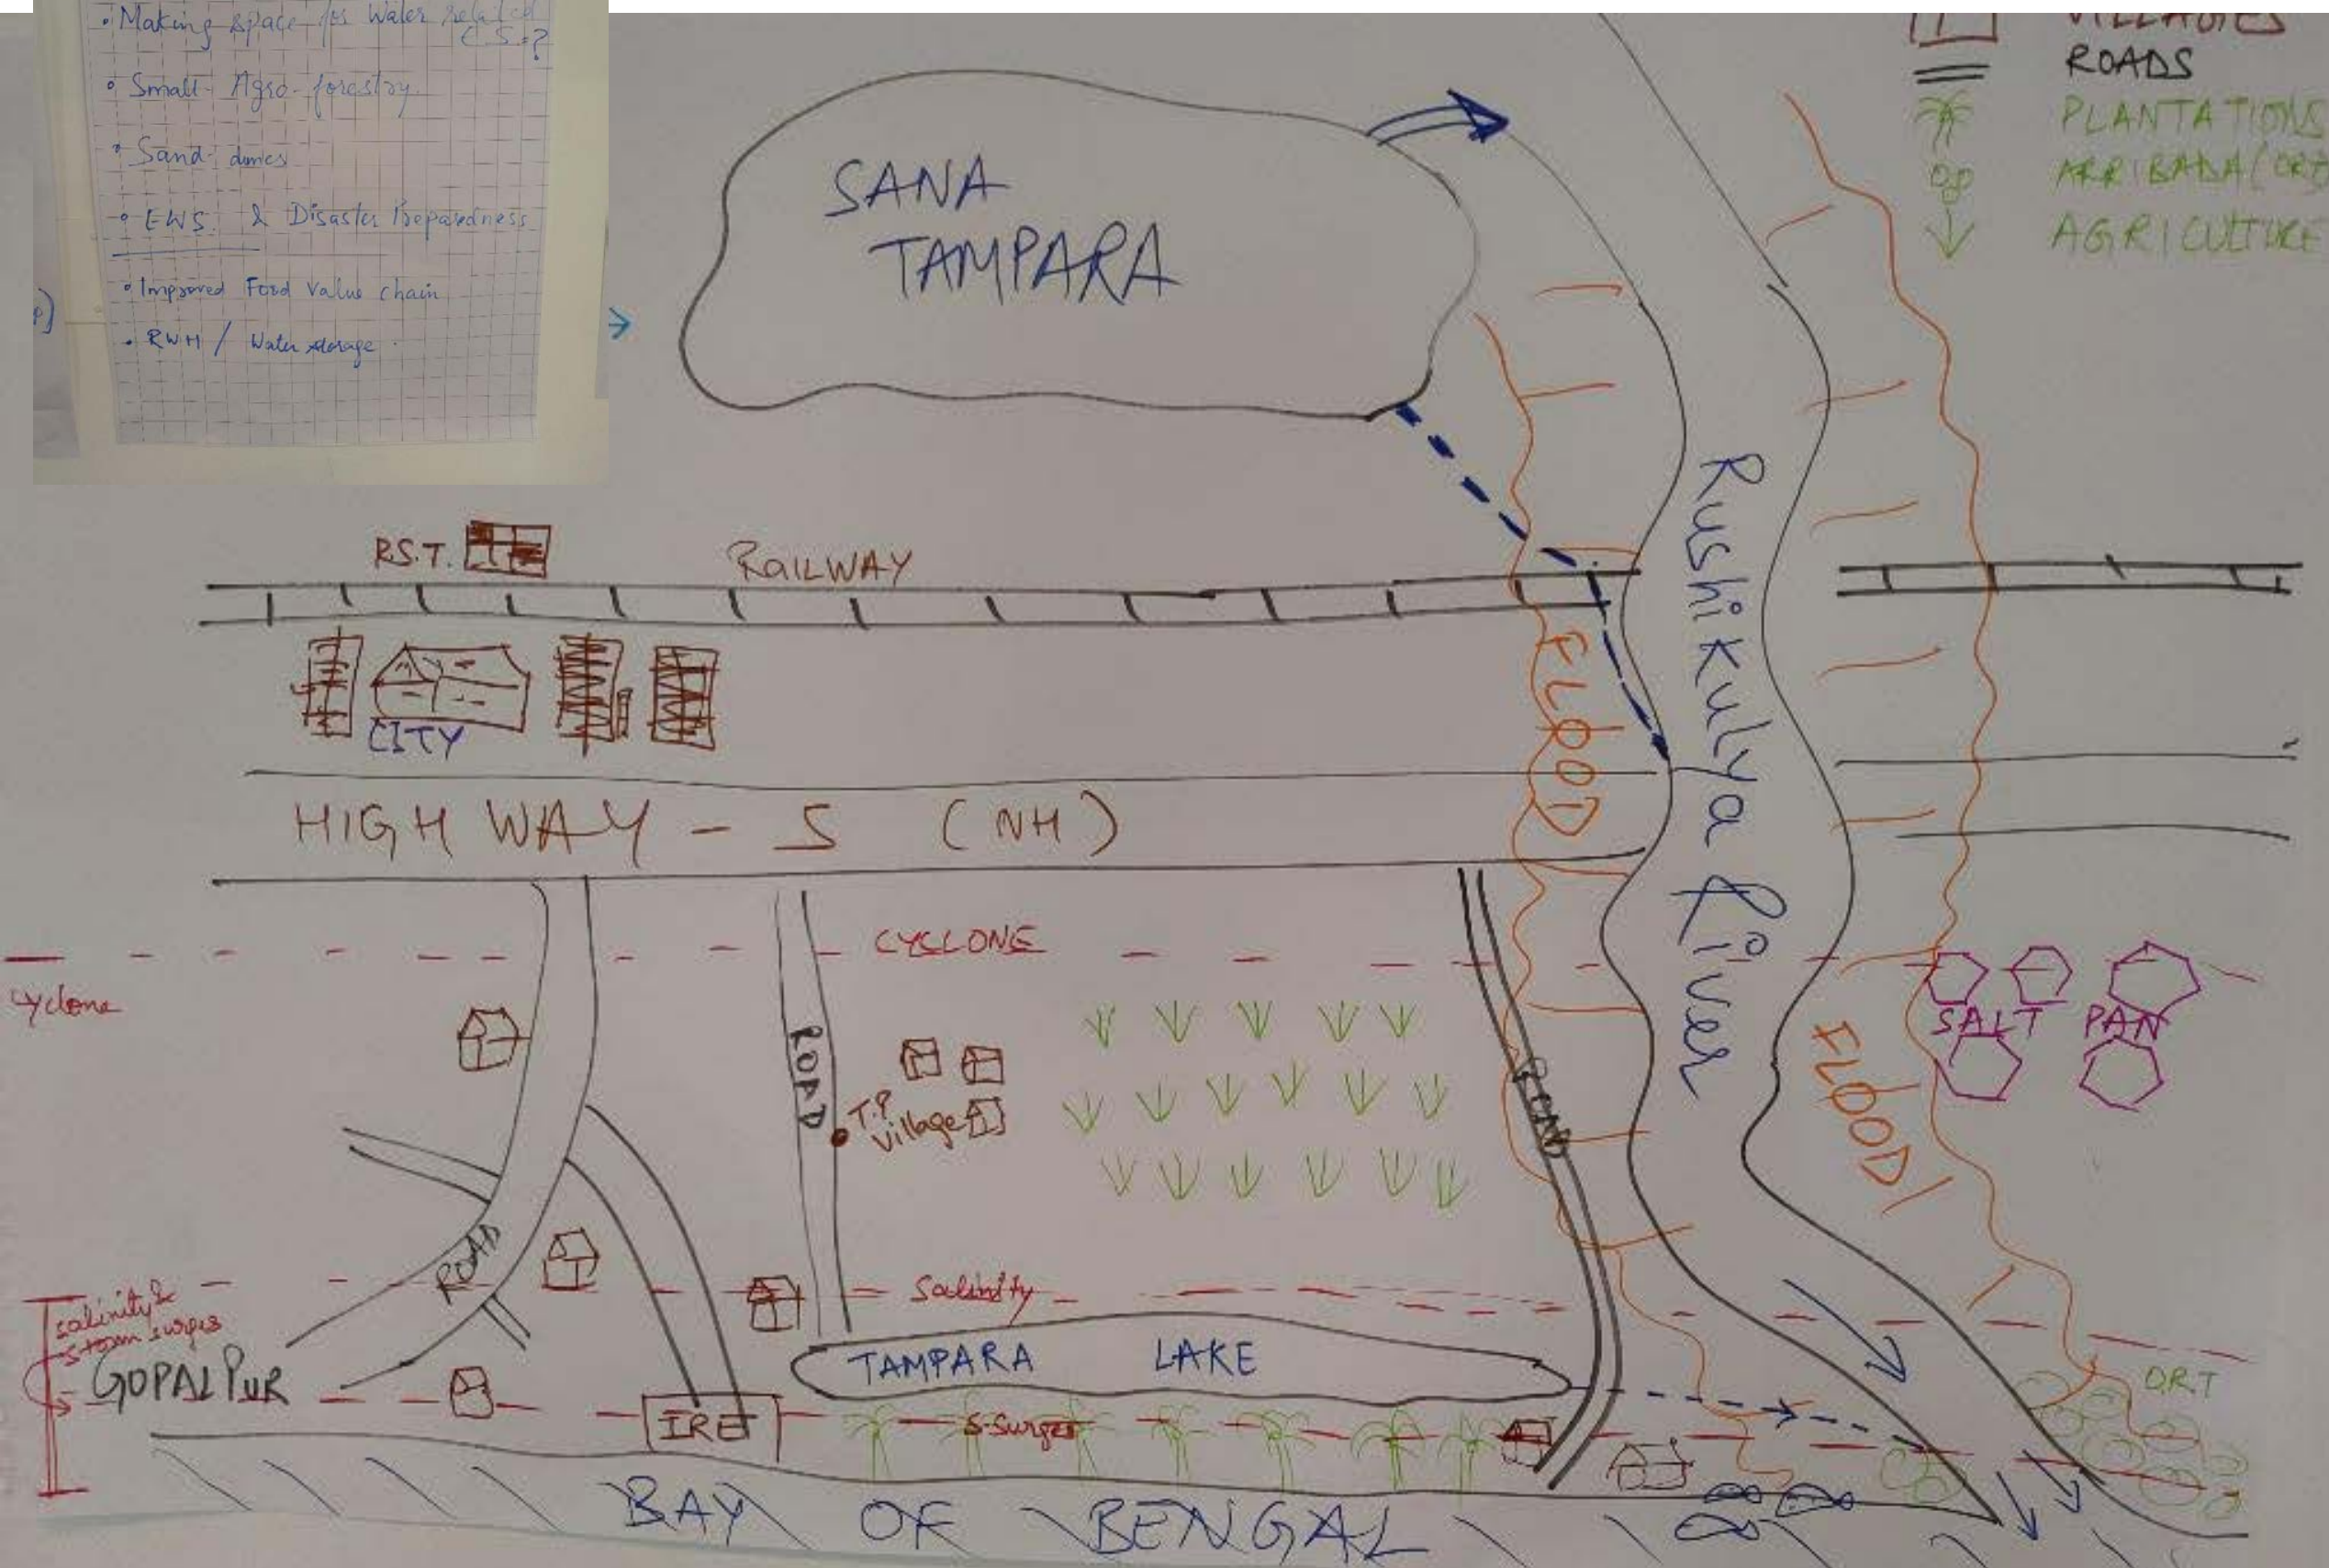 • Making space for Water related
• Small Agro-forestry
• Sand dunes
• EWS. & Disaster Preparedness
• Improved Food Value chain
• RWH / Water storage
VILLAGES
ROADS
PLANTATIONS
ARRIBADA (ORT
AGRICULTURE
SANA
TAMPARA
Rushikulya River
R.S.T.
RAILWAY
CITY
FLOOD
HIGHWAY - 5 (NH)
CYCLONE
cyclone
ROAD
T.P.
village
ROAD
SALT PAN
FLOOD
ROAD
Salinity
salinity &
storm surges
GOPALPUR
TAMPARA LAKE
O.R.T
IRE
S-Surges
BAY OF BENGAL